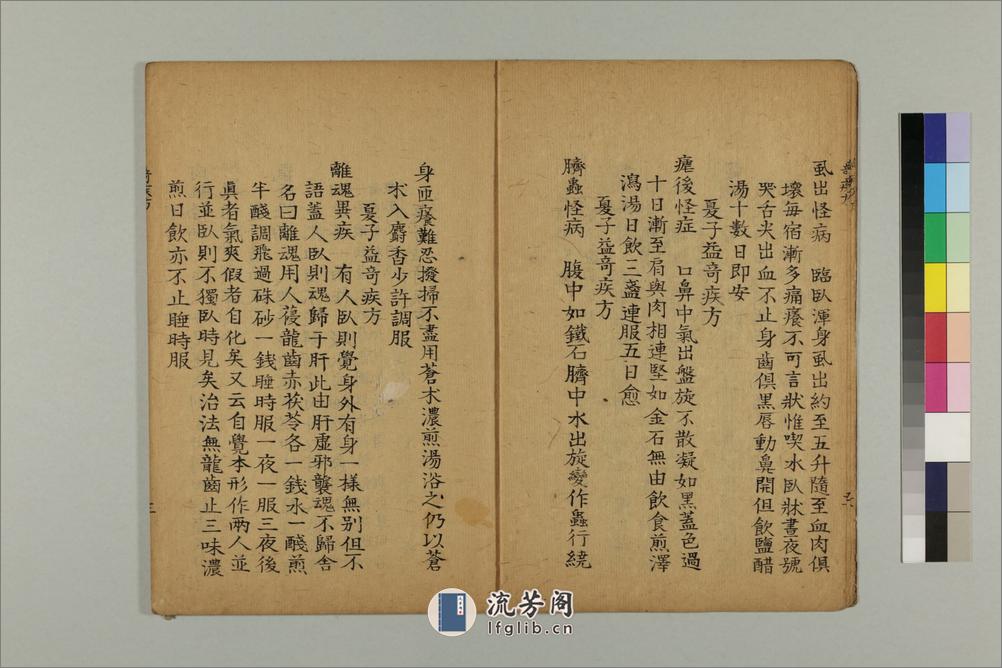 虱出怪病　臨臥渾身虱出約至五升隨至血肉俱
壞每宿漸多痛癢不可言狀惟喫水臥牀晝夜號
哭舌尖出血不止身齒俱黑唇動鼻開但飲鹽醋
湯十數日即安
夏子益奇疾方
瘧後怪症　口鼻中氣出盤旋不散凝如黑蓋色過
十日漸至肩與肉相連堅如金石無由飲食煎澤
瀉湯日飲三盞連服五日愈
夏子益奇疾方
臍蟲怪病　腹中如鐵石臍中水出旋變作蟲行繞
身匝癢難忍撥掃不盡用蒼朮濃煎湯浴之仍以蒼
朮入麝香少許調服
夏子益奇疾方
離魂異疾　有人臥則覺身外有身一樣無别但不
語蓋人臥則魂歸于肝此由肝虛邪襲魂不歸舍
名曰離魂用人葠龍齒赤茯苓各一錢水一醆煎
半醆調飛過硃砂一錢睡時服一夜一服三夜後
眞者氣爽假者自化矣又云自覺本形作兩人並
行並臥則不獨臥時見矣治法無龍齒止三味濃
煎日飲亦不止睡時服
流芳阁
lfglib.cn